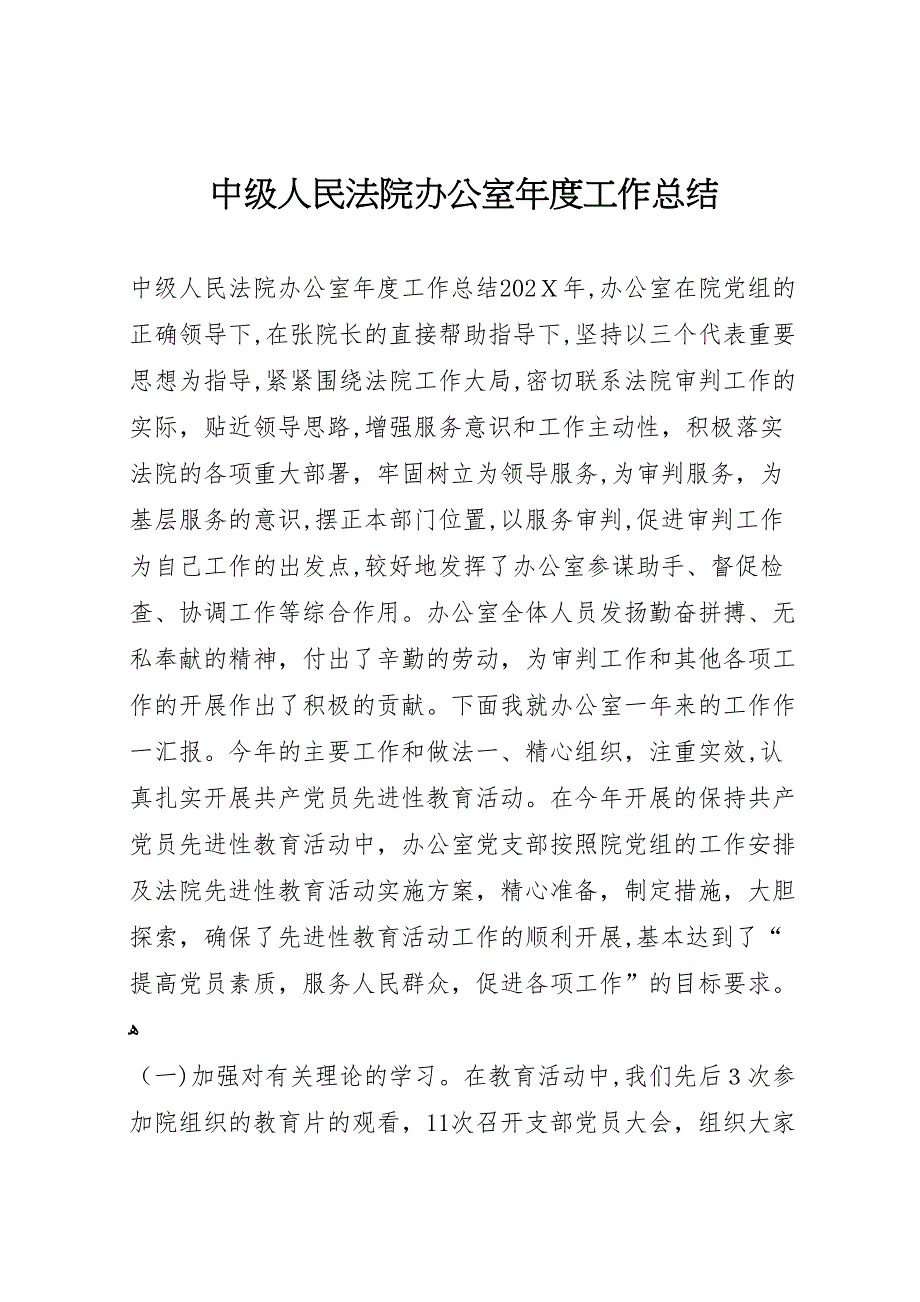 中级人民法院办公室年度工作总结
中级人民法院办公室年度工作总结202X年,办公室在院党组的
正确领导下,在张院长的直接帮助指导下,坚持以三个代表重要
思想为指导,紧紧围绕法院工作大局,密切联系法院审判工作的
实际，贴近领导思路,增强服务意识和工作主动性，积极落实
法院的各项重大部署，牢固树立为领导服务,为审判服务，为
基层服务的意识,摆正本部门位置,以服务审判,促进审判工作
为自己工作的出发点,较好地发挥了办公室参谋助手、督促检
查、协调工作等综合作用。办公室全体人员发扬勤奋拼搏、无
私奉献的精神，付出了辛勤的劳动，为审判工作和其他各项工
作的开展作出了积极的贡献。下面我就办公室一年来的工作作
一汇报。今年的主要工作和做法一、精心组织，注重实效,认
真扎实开展共产党员先进性教育活动。在今年开展的保持共产
党员先进性教育活动中，办公室党支部按照院党组的工作安排
及法院先进性教育活动实施方案，精心准备，制定措施，大胆
探索，确保了先进性教育活动工作的顺利开展,基本达到了“
提高党员素质，服务人民群众，促进各项工作”的目标要求。
ﻫ
（一)加强对有关理论的学习。在教育活动中,我们先后3次参
加院组织的教育片的观看，11次召开支部党员大会，组织大家